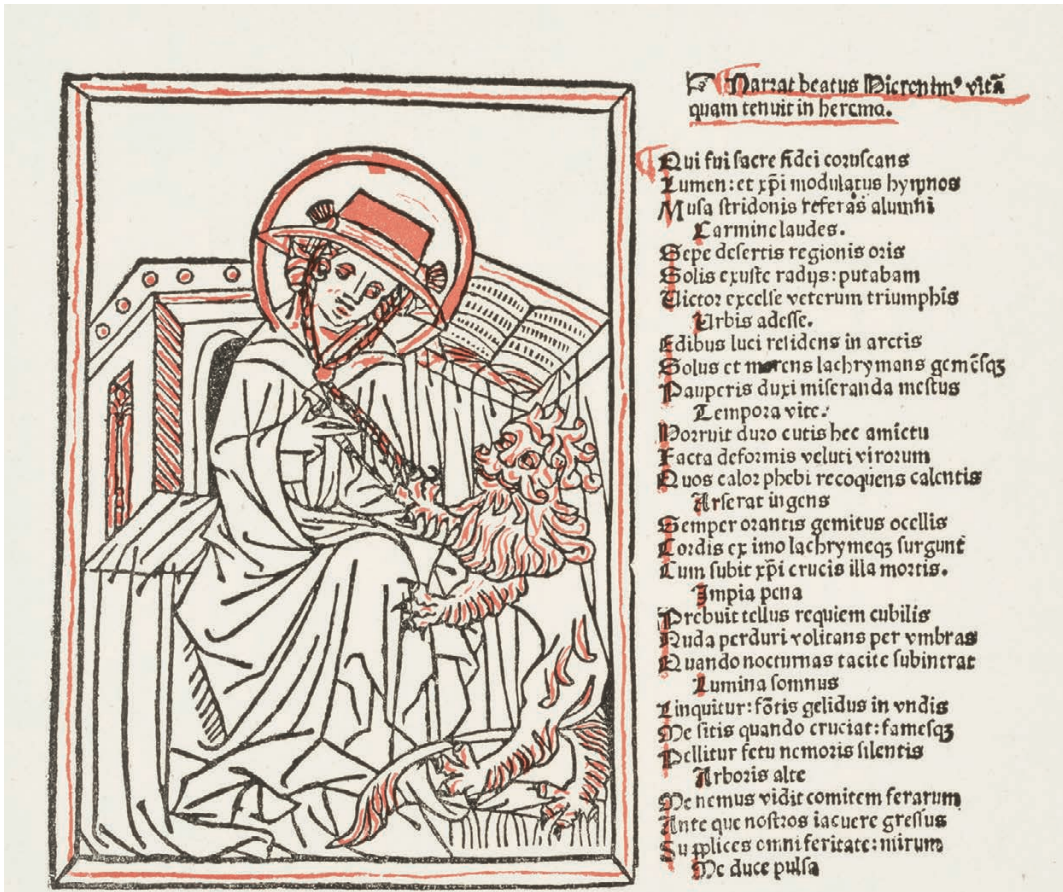 Narrat beatus Hieronimꝰ vitā
quam tenuit in heremo.
Qui fui sacre fidei coruscans
Lumen: et xp̄i modulatus hympnos
Musa stridonis referās alumni
Carmine laudes.
Sepe desertis regionis oris
Solis exuste radijs: putabam
Victor excelse veterum triumphis
Urbis adesse.
Edibus luci residens in arctis
Solus et merens lachrymans gemēsqꝫ
Pauperis duxi miseranda mestus
Tempora vite.
Horruit duro cutis hec amictu
Facta deformis veluti virorum
Quos calor phebi recoquens calentis
Arserat ingens
Semper orantis gemitus ocellis
Cordis ex imo lachrymeqꝫ surgunt
Cum subit xp̄i crucis illa mortis.
Impia pena
Prebuit tellus requiem cubilis
Nuda perduri volitans per vmbras
Quando nocturnas tacite subintrat
Lumina somnus
Linquitur: fōtis gelidus in vndis
Me sitis quando cruciat: famesqꝫ
Pellitur fetu nemoris silentis
Arboris alte
Me nemus vidit comitem ferarum
Ante que nostros iacuere gressus
Supplices omni feritate: mirum
Me duce pulsa